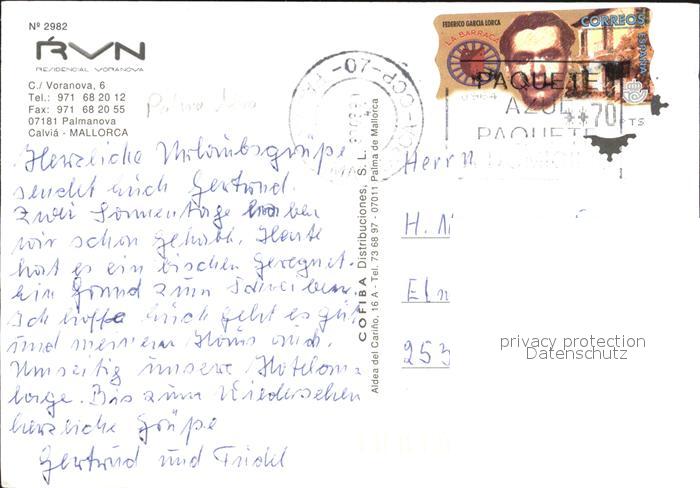 Nº 2982
RVN
RESIDENCIAL VORANOVA
C./ Voranova, 6
Tel.: 971 68 20 12
Fax: 971 68 20 55
07181 Palmanova
Calviá - MALLORCA
Palma Nova
Herzliche Urlaubsgrüße
sendet Euch Gertrud.
Zwei Sonnentage haben
wir schon gehabt. Heute
hat es ein bischen geregnet.
Ein Grund zum Schreiben.
Ich hoffe Euch geht es gut
und meinem Haus auch.
Umseitig unsere Hotelan-
lage. Bis zum Wiedersehen
herzliche Grüße
Gertrud und Friedl
COFIBA Distribuciones, S. L.
Aldea del Cariño, 16 A - Tel. 73 68 97 - 07011 Palma de Mallorca
FEDERICO GARCIA LORCA
LA BARRACA
CORREOS
ESPAÑA
PAQUETE
AZUL
PAQUETE
**70
PTS
Herrn
H.
El
253
privacy protection
Datenschutz